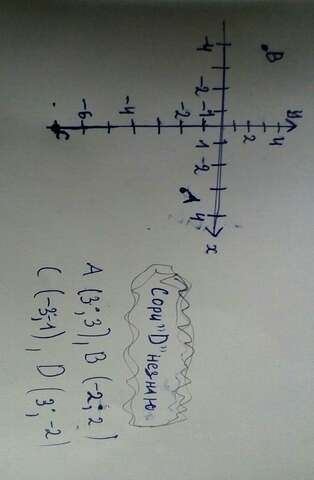 y
4
B
2
-4 -2 -1 1 -2 4 x
-2
A
-4
-6
C
Сори "D" незнию
A (3; 3), B (-2; 2)
C (-3; -1), D (3; -2)